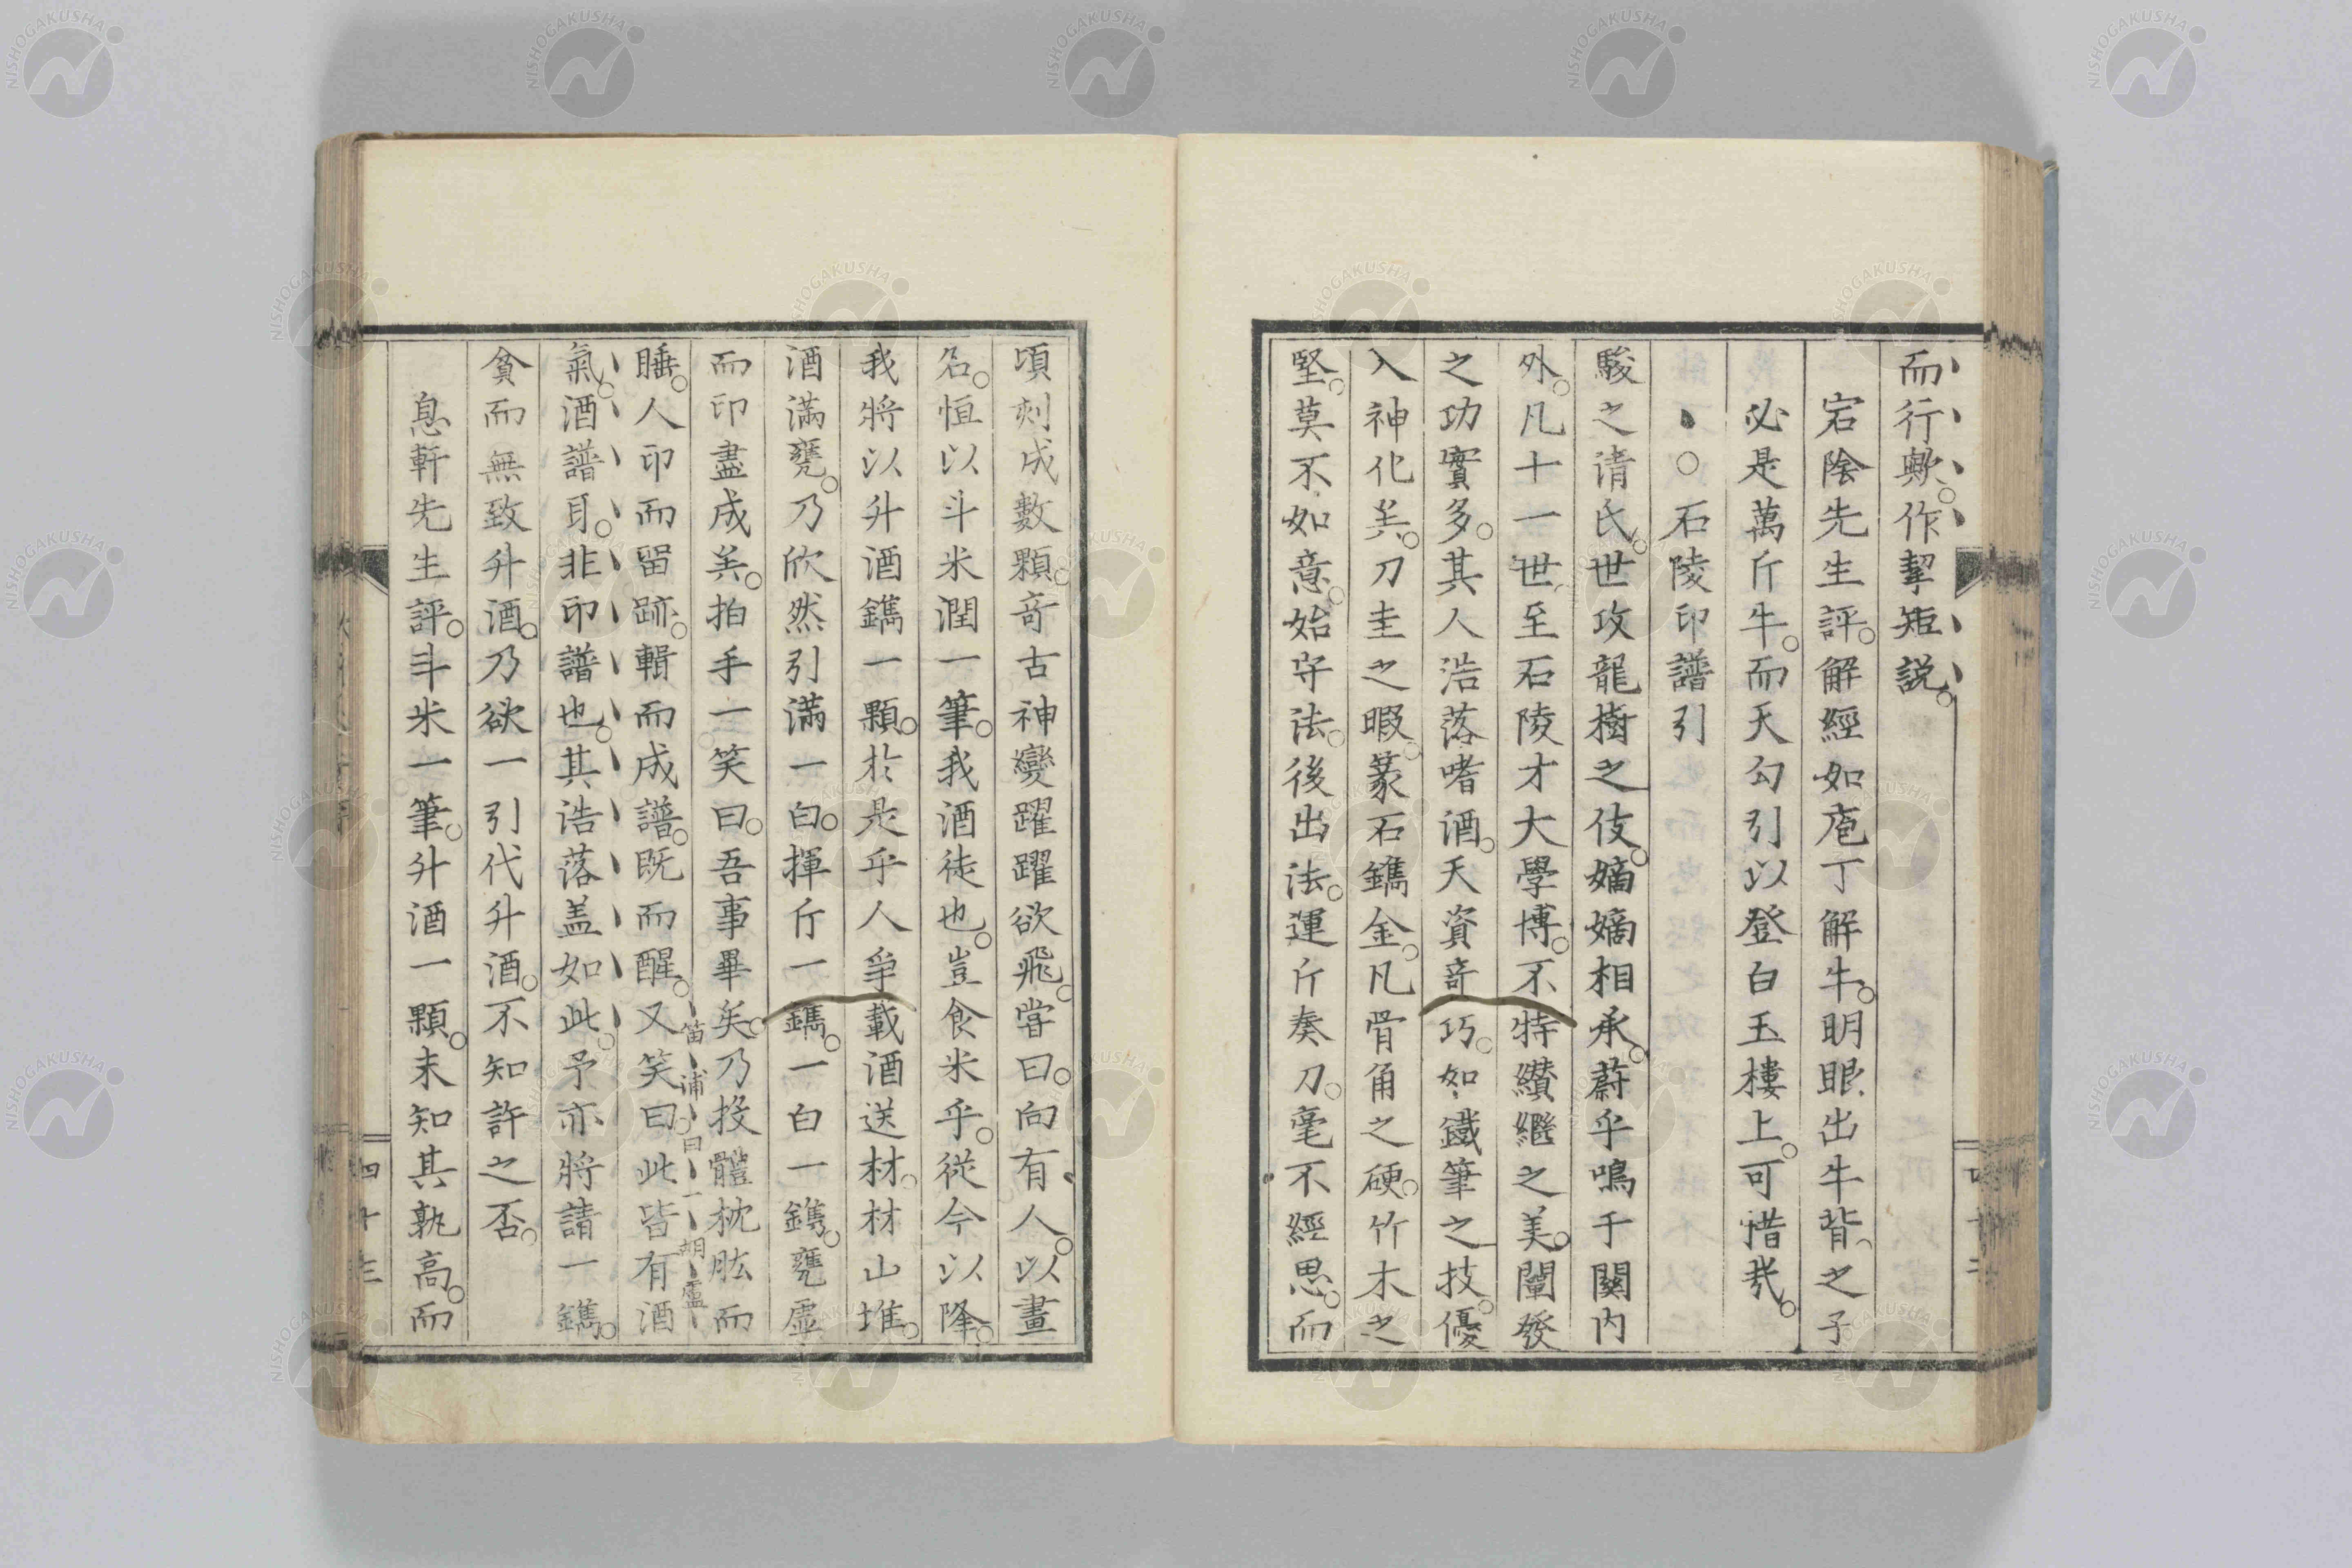 而行歟。作挈矩説。
宕陰先生評。解經如庖丁解牛。明眼出牛背之子
必是萬斤牛。而天勾引以登白玉樓上。可惜哉。
○石陵印譜引
駿之清氏。世攻龍樹之伎。嫡嫡相承。蔚乎鳴于關内
外。凡十一世至石陵才大學博。不特纘繼之美。闡發
之功實多。其人浩落嗜酒。天資奇巧。如鐵筆之技。優
入神化矣。刀圭之暇。篆石鐫金。凡骨角之硬。竹木之
堅。莫不如意。始守法。後出法。運斤奏刀。毫不經思。而
四十二
頃刻成數顆。奇古神變躍躍欲飛。嘗曰。向有人。以畫
名。恒以斗米潤一筆。我酒徒也。豈食米乎。從今以降。
我將以升酒鐫一顆。於是乎人爭載酒送材。材山堆。
酒滿甕。乃欣然引滿一白。揮斤一鐫。一白一鐫。甕虛
而印盡成矣。拍手一笑曰。吾事畢矣。乃投體枕肱而
笛浦曰一胡盧
睡。人印而留跡。輯而成譜。既而醒。又笑曰。此皆有酒
氣。酒譜耳。非印譜也。其浩落盖如此。予亦將請一鐫。
貧而無致升酒。乃欲一引代升酒。不知許之否。
息軒先生評。斗米一筆。升酒一顆。未知其孰高。而
四十三
NISHOGAKUSHA